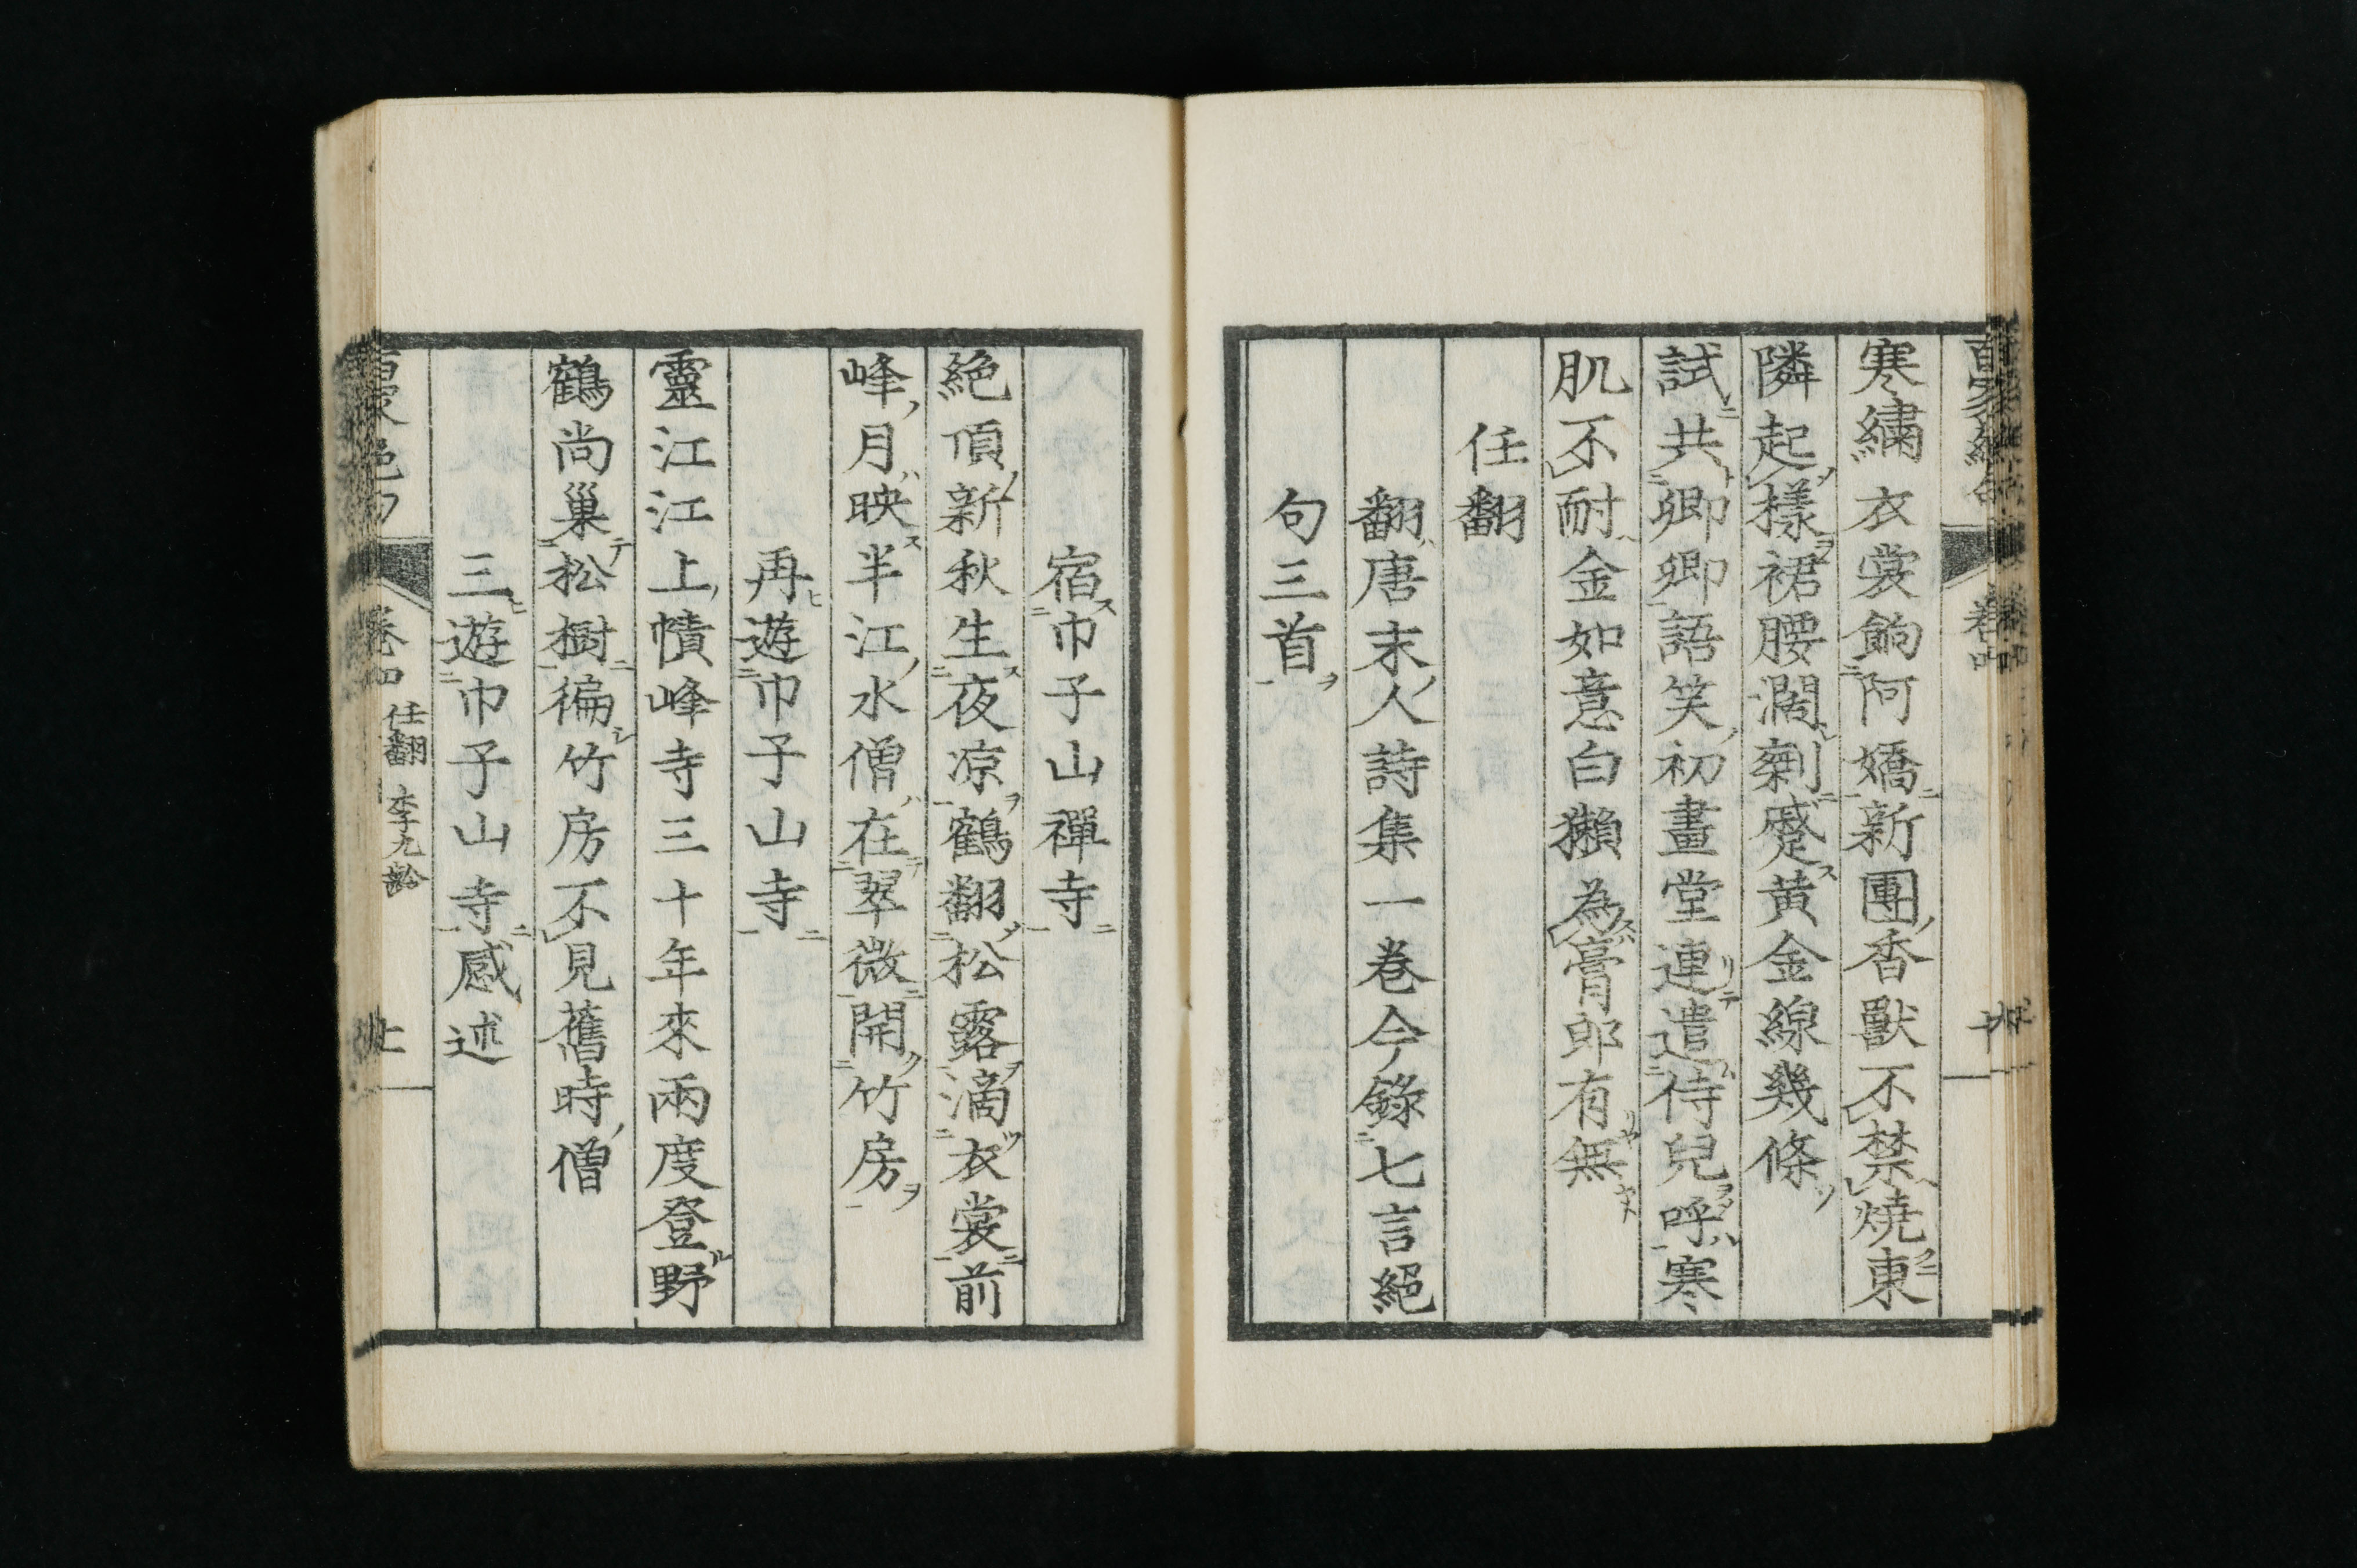 寒繡衣裳餉阿嬌新團香獸不禁燒東
隣起樣裙腰濶剩蹙黄金線幾條
試共卿卿語笑初畫堂連遣侍兒呼寒
肌不耐金如意白獺為膏郎有無
任翻
翻唐末人詩集一卷今錄七言絕
句三首
宿巾子山禪寺
絶頂新秋生夜凉鶴翻松露滴衣裳前
峰月映半江水僧在翠微開竹房
再遊巾子山寺
靈江江上幘峰寺三十年來兩度登野
鶴尚巢松樹徧竹房不見舊時僧
三遊巾子山寺感述
卷四 任翻 李九齡